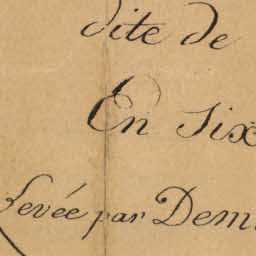 dite de
En six
Levée par Dem